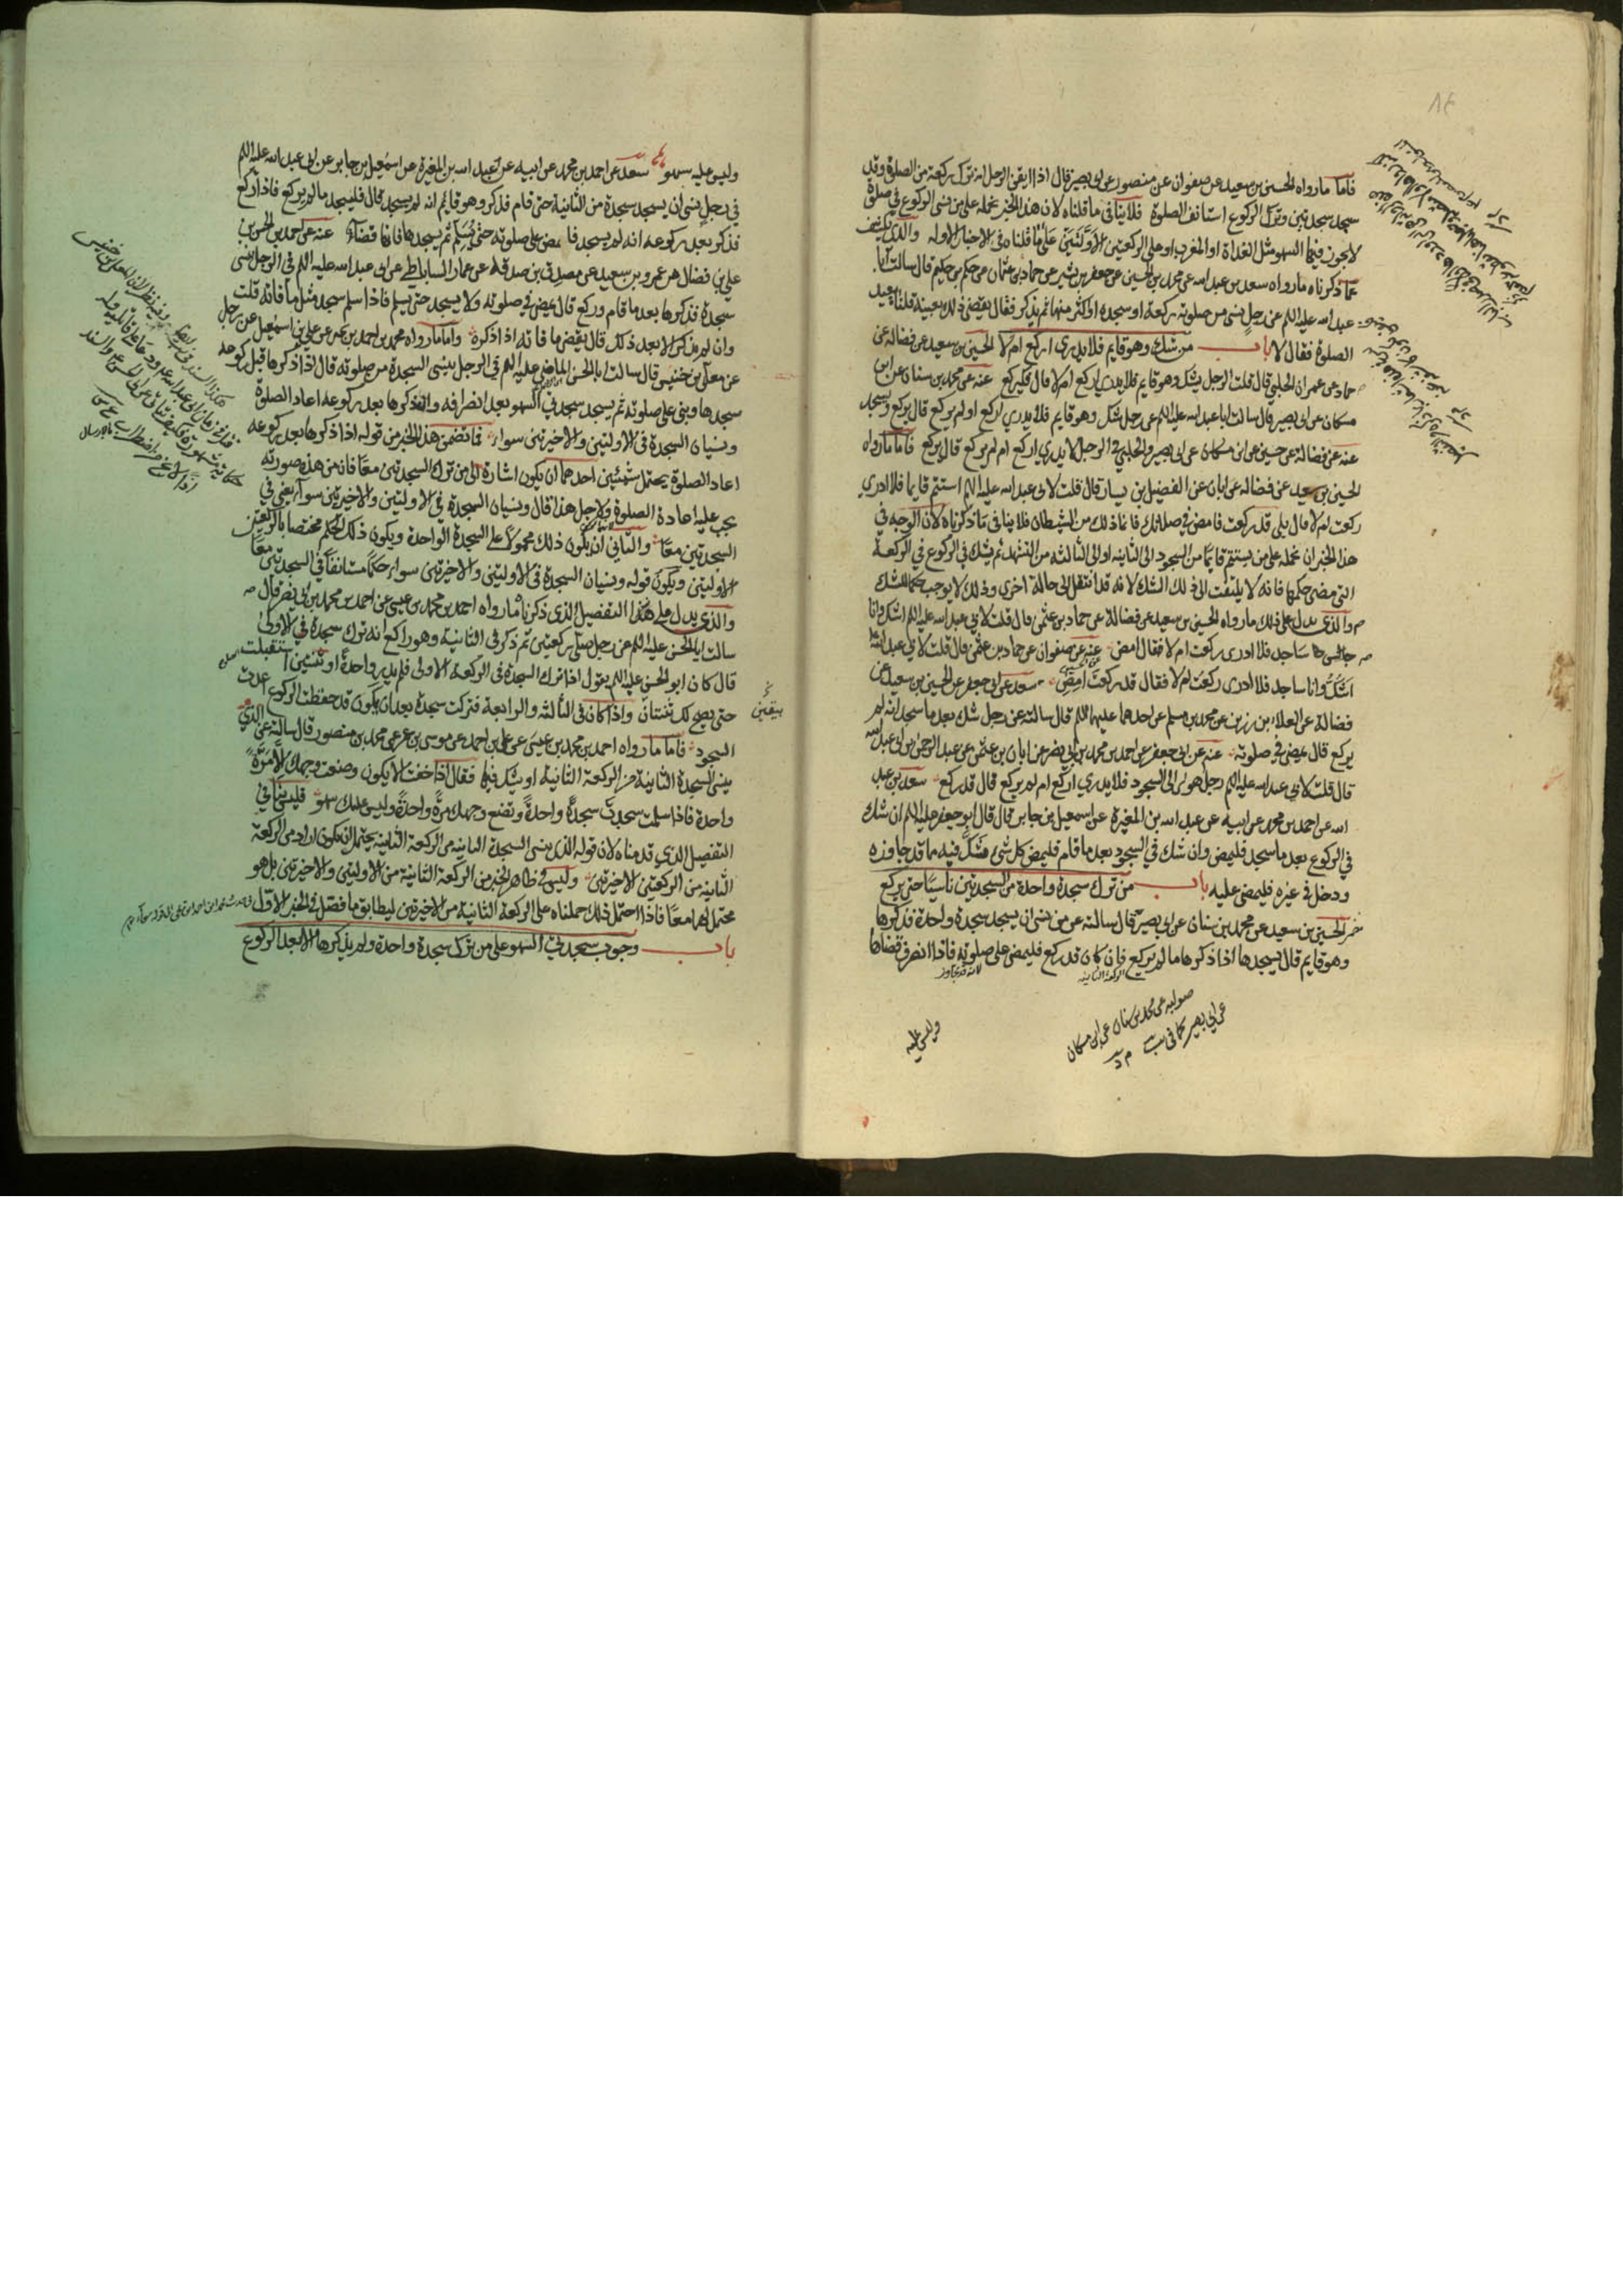 فاما ما رواه الحسين بن سعيد عن صفوان عن منصور عن ابى بصير قال اذا ايقن الرجل انه ترك ركعة من الصلوة وقد
سجد سجدتين وترك الركوع استانف الصلوة فلا ينافى ما قلناه لان هذا الخبر نحمله على من نسى الركوع فى صلوة
لا يجوز فيها السهو مثل الغداة او المغرب او من الركعتين الاولتين على ما قلناه فى الاخبار الاوله والذى يكشف
عما ذكرناه ما رواه سعد بن عبد الله عن محمد بن الحسين عن جعفر بن بشير عن حماد بن عثمان عن حكم بن حكيم قال سالت ابا
عبد الله عليه السلم عن رجل نسى من صلوته ركعة او سجدة او اكثر منها ثم يذكر فقال يقضى ذلك بعينه قلنا يعيد
الصلوة فقال لا باب من شك وهو قايم فلا يدرى اركع ام لا الحسين بن سعيد عن فضالة عن
حماد عن عمران الحلبى قال قلت الرجل يشك وهو قايم فلا يدرى اركع ام لا قال فليركع عنه عن محمد بن سنان عن ابن
مسكان عن ابى بصير قال سالت ابا عبد الله عليه السلم عن رجل شك وهو قايم فلا يدرى اركع او لم يركع قال يركع ويسجد
عنه عن فضالة عن حسين عن ابن مسكان عن ابى بصير والحلبى فى الرجل لا يدرى اركع ام لم يركع قال يركع فاما ما رواه
الحسين بن سعيد عن فضاله عن ابان عن الفضيل بن يسار قال قلت لابى عبد الله عليه السلم استتم قايما فلا ادرى
ركعت ام لا قال بلى قد ركعت فامض فى صلاتك فانما ذلك من الشيطان فلا ينافى ما ذكرناه لان الوجه فى
هذا الخبر ان نحمله على من يستتم قايما من السجود الى الثانيه او الى الثالثه من التشهد ثم يشك فى الركوع فى الركعة
التى مضى حكمها فانه لا يلتفت الى ذلك الشك لانه قد انتقل الى حالة اخرى وذلك لا يوجب حكما للشك
والذى يدل على ذلك ما رواه الحسين بن سعيد عن فضالة عن حماد بن عثمن قال قلت لابى عبد الله عليه السلم اشك وانا
ساجد فلا ادرى ركعت ام لا فقال امض عنه عن صفوان عن حماد بن عثمن قال قلت لابى عبد الله
اشك وانا ساجد فلا ادرى ركعت ام لا فقال قد ركعت امضه سعد عن ابى جعفر عن الحسين بن سعيد عن
فضالة عن العلا بن رزين عن محمد بن مسلم عن احدهما عليهما السلم قال سالته عن رجل شك بعد ما سجد انه لم
يركع قال يمضى فى صلوته عنه عن ابى جعفر عن احمد بن محمد بن ابى نصر عن ابان بن عثمن عن عبد الرحمن بن ابى عبد الله
قال قلت لابى عبد الله عليه السلم رجل اهوى الى السجود فلا يدرى اركع ام لم يركع قال قد ركع سعد بن عبد
الله عن احمد بن محمد عن ابيه عن عبد الله بن المغيرة عن اسمعيل بن جابر قال قال ابو جعفر عليه السلم ان شك
فى الركوع بعد ما سجد فليمض وان شك فى السجود بعد ما قام فليمض كل شى شك فيه مما قد جاوزه
ودخل فى غيره فليمض عليه باب من ترك سجدة واحدة من السجدتين ناسيا حتى يركع
الحسين بن سعيد عن محمد بن سنان عن ابى بصير قال سالته عن من نسى ان يسجد سجدة واحدة فذكرها
وهو قايم قال يسجدها اذا ذكرها ما لم يركع فان كان قد ركع فليمض على صلوته فاذا انصرف قضاها
صوابه عن محمد بن سنان عن ابن مسكان
عن ابى بصير كما فى يب
وليس عليه
وليس عليه سهو سعد عن احمد بن محمد عن ابيه عن عبد الله بن المغيرة عن اسمعيل بن جابر عن ابى عبد الله عليه السلم
فى رجل نسى ان يسجد سجدة من الثانية حتى قام فذكر وهو قايم انه لم يسجد قال فليسجد ما لم يركع فاذا ركع
فذكر بعد ركوعه انه لم يسجد فليمض على صلوته حتى يسلم ثم يسجدها فانها قضاء عنه عن احمد بن الحسن بن
على بن فضال عن عمرو بن سعيد عن مصدق بن صدقه عن عمار الساباطى عن ابى عبد الله عليه السلم فى الرجل ينسى
سجدة فذكرها بعد ما قام وركع قال يمضى فى صلوته ولا يسجد حتى يسلم فاذا سلم سجد مثل ما فاته قلت
وان لم يذكر الا بعد ذلك قال يقضى ما فاته اذا ذكره واما ما رواه محمد بن احمد بن يحيى عن على بن اسمعيل عن رجل
عن معلى بن خنيس قال سالت ابا الحسن الماضى عليه السلم فى الرجل ينسى السجدة من صلوته قال اذا ذكرها قبل ركوعه
سجدها وبنى على صلوته ثم يسجد سجدتى السهو بعد انصرافه وان ذكرها بعد ركوعه اعاد الصلوة
ونسيان السجدة فى الاولتين والاخيرتين سواء فما تضمن هذا الخبر من قوله اذا ذكرها بعد ركوعه
اعاد الصلوة يحتمل شيئين احدهما ان يكون اشارة الى من ترك السجدتين معا فانه من هذه صورته
يجب عليه اعادة الصلوة ولاجل هذا قال ونسيان السجدة فى الاولتين والاخيرتين سواء يعنى فى
السجدتين معا والثانى ان يكون ذلك محمولا على السجدة الواحدة ويكون ذلك الحكم مختصا بالركعتين
الاولتين ويكون قوله ونسيان السجدة فى الاولتين والاخيرتين سواء حكما مستانفا فى السجدتين معا
والذى يدل على هذا التفصيل الذى ذكرناه ما رواه احمد بن محمد بن عيسى عن احمد بن محمد بن ابى نصر قال
سالت ابا الحسن عليه السلم عن رجل صلى ركعتين ثم ذكر فى الثانية وهو راكع انه ترك سجدة فى الاولى
قال كان ابو الحسن عليه السلم يقول اذا ترك السجدة فى الركعة الاولى فلم يدر واحدة او ثنتين استقبلت
حتى يصح لك ثنتان واذا كان فى الثالثه والرابعة فتركت سجدة بعد ان يكون قد حفظت الركوع اعدت
السجود فاما ما رواه احمد بن محمد بن عيسى عن على بن احمد عن موسى بن عمر عن محمد بن منصور قال سالته عن الذى
ينسى السجدة الثانية من الركعة الثانية او يشك فيها فقال اذا خفت الا يكون وضعت وجهك الا مرة
واحدة فاذا سلمت سجدت سجدة واحدة وتضع وجهك مرة واحدة وليس عليك سهو فليس ينافى
التفصيل الذى قدمناه لان قوله الذى ينسى السجدة الثانيه من الركعة الثانية يحتمل ان يكون اراد من الركعة
الثانيه من الركعتين الاخيرتين وليس فى ظاهر الخبر من الركعة الثانية من الاولتين والاخيرتين بل هو
محتمل لهما معا فاذا احتمل ذلك حملناه على الركعة الثانية من الاخيرتين ليطابق ما فصل فى الخبر الاول
باب وجوب سجدتى السهو على من ترك سجدة واحدة ولم يذكرها الا بعد الركوع